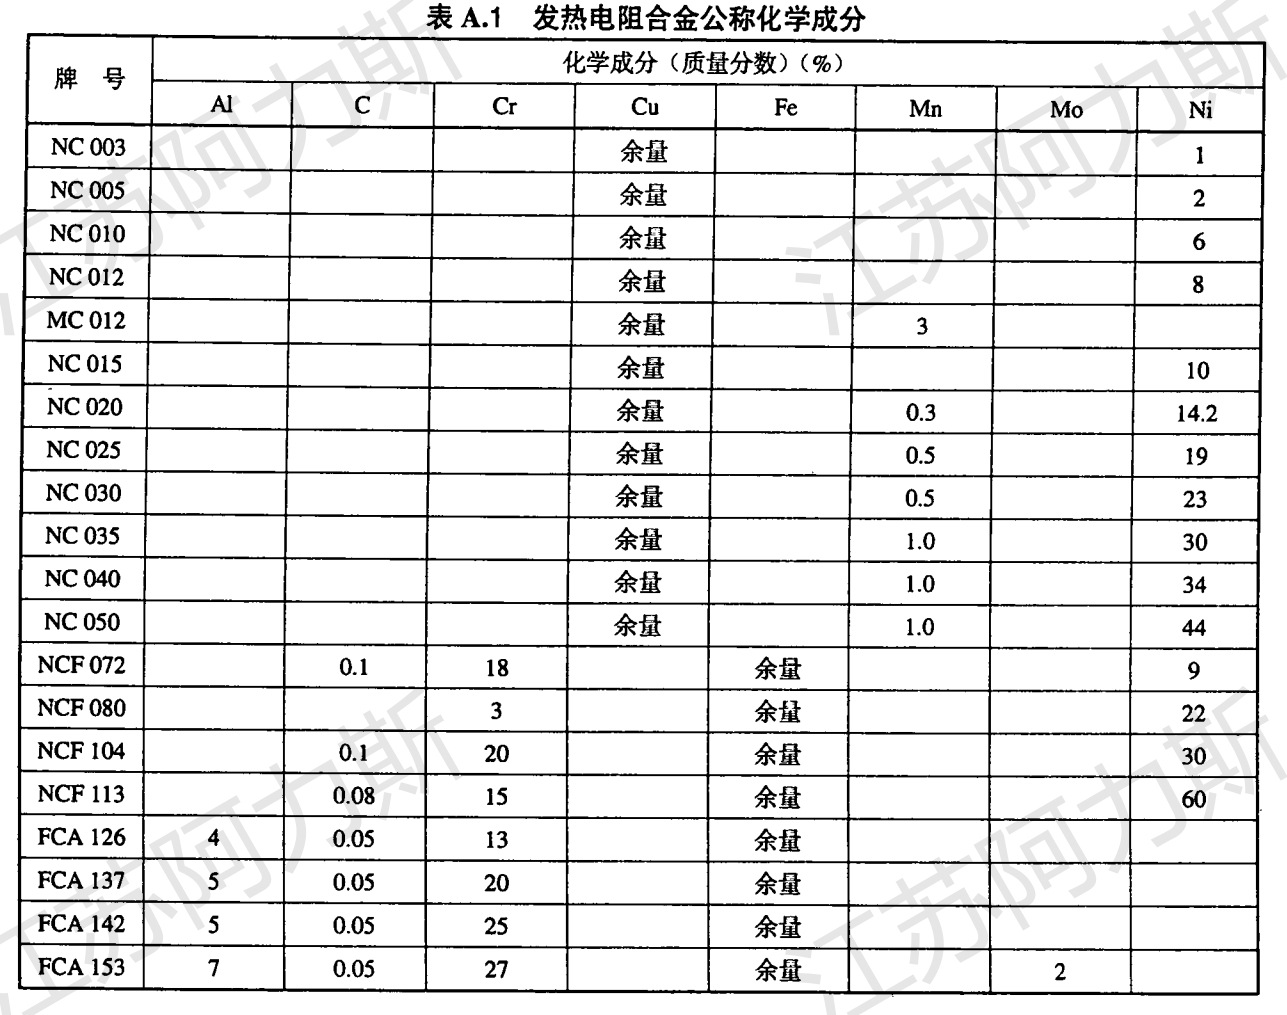 表 A.1 发热电阻合金公称化学成分
牌 号 化学成分（质量分数）（%）
Al C Cr Cu Fe Mn Mo Ni
NC 003 余量 1
NC 005 余量 2
NC 010 余量 6
NC 012 余量 8
MC 012 余量 3
NC 015 余量 10
NC 020 余量 0.3 14.2
NC 025 余量 0.5 19
NC 030 余量 0.5 23
NC 035 余量 1.0 30
NC 040 余量 1.0 34
NC 050 余量 1.0 44
NCF 072 0.1 18 余量 9
NCF 080 3 余量 22
NCF 104 0.1 20 余量 30
NCF 113 0.08 15 余量 60
FCA 126 4 0.05 13 余量
FCA 137 5 0.05 20 余量
FCA 142 5 0.05 25 余量
FCA 153 7 0.05 27 余量 2
江苏阿力斯
江苏阿力斯
江苏阿力斯
江苏阿力斯